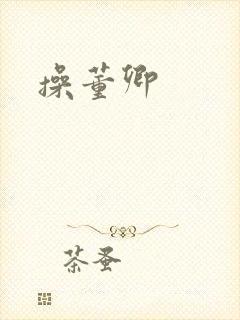 操董卿
茶蚤